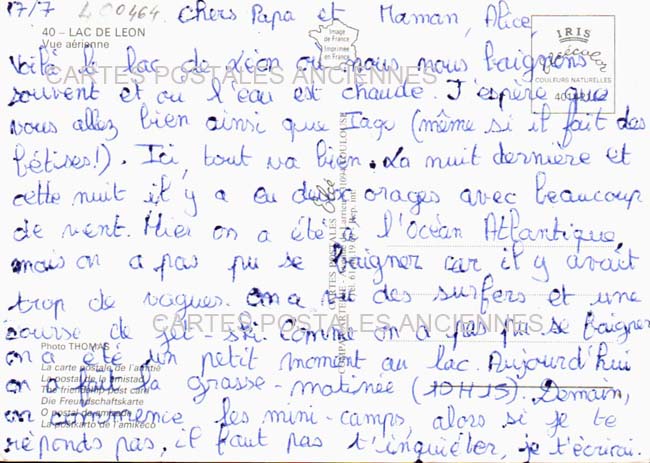 17/7 L00464 Chers Papa et Maman, Alice,
40 - LAC DE LEON
Vue aérienne
Image de France
Imprimée en France
IRIS
COULEURS NATURELLES
Voilà le lac de Léon où nous nous baignons
CARTES POSTALES ANCIENNES
souvent et où l'eau est chaude. J'espère que
vous allez bien ainsi que (même si il fait des
bêtises!). Ici, tout va bien. La nuit dernière et
cette nuit il y a eu deux orages avec beaucoup
de vent. Hier on a été à l'Océan Atlantique,
mais on a pas pu se baigner car il y avait
trop de vagues. On a vu des surfers et une
CARTES POSTALES ANCIENNES
course de jet-ski. Comme on a pas pu se baigner
Photo THOMAS
on a été un petit moment au lac. Aujourd'hui
La carte postale de l'amitié
La postal de la amistad
on a fait la grasse-matinée (10H15). Demain,
The friendship post card
Die Freundschaftskarte
on commence les mini-camps, alors si je te
O postal da amizade
La postkarto de l'amikeco
réponds pas, il faut pas t'inquiéter, je t'écrirai.